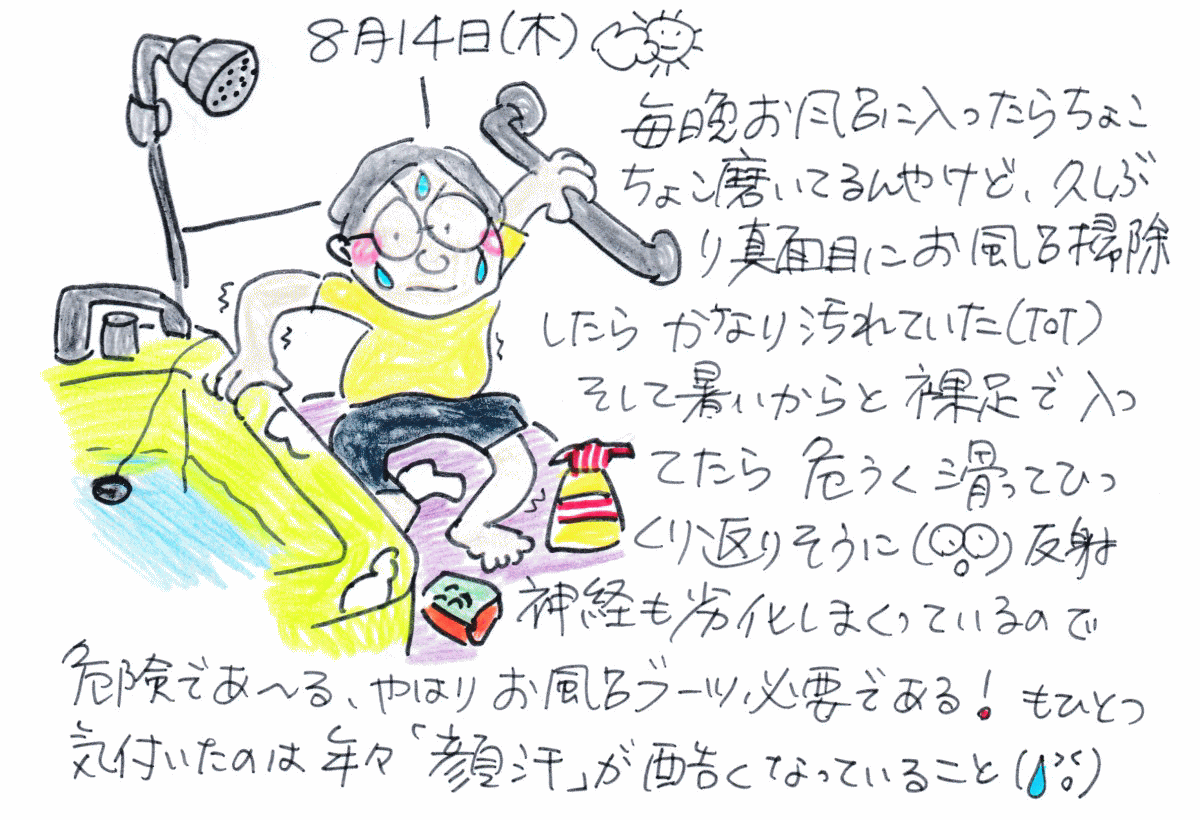 8月14日(木)
毎日晩お風呂に入ったらちょこ
ちょこ磨いてるんやけど、久しぶ
り真面目にお風呂掃除
したら かなり汚れていた(ToT)
そして暑いからと 裸足で入っ
てたら 危うく滑ってひっ
くり返りそうに(○○)反射
神経も劣化しまくっているので
危険であ〜る、やはりお風呂ブーツ必要である！もひとつ
気付いたのは年々「顔汗」が酷くなっていること